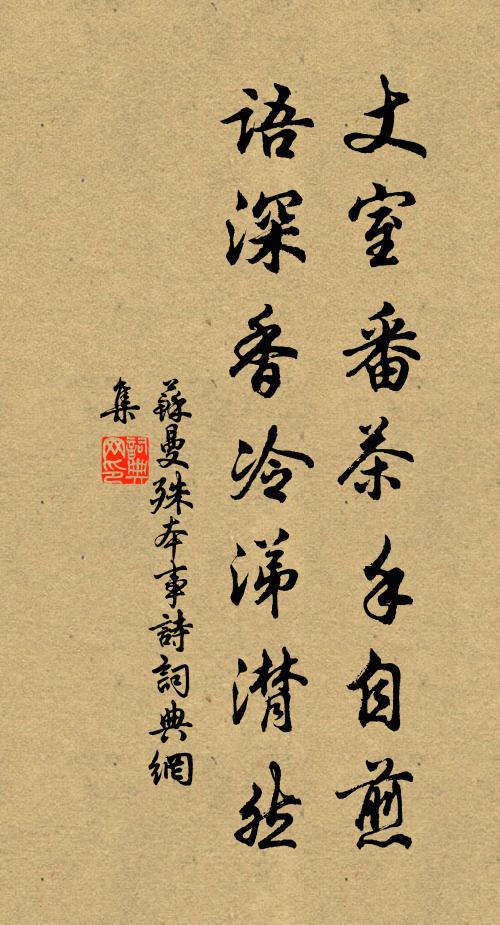 丈室番茶手自煎
語深香冷涕潸然
蘇曼殊本事詩詞典網
集
詞典
网印